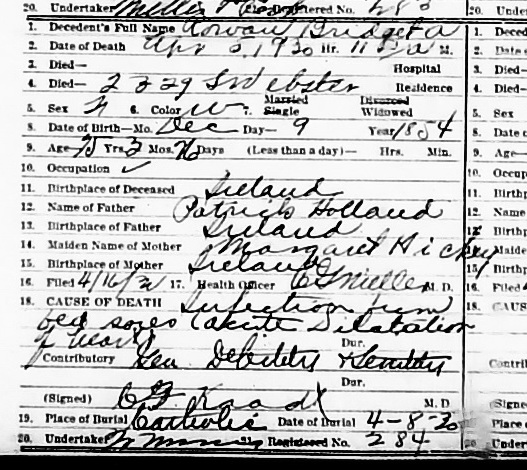 20. Undertaker Miller Registered No. 283
1. Decedent's Full Name Rowan Bridget A
2. Date of Death Apr 5, 1930 Hr. 11 A M.
3. Died— Hospital
4. Died— 2329 S Webster Residence
5. Sex F 6. Color W 7. Married Single Divorced Widowed
8. Date of Birth—Mo. Dec Day— 9 Year 1854
9. Age 75 Yrs. 3 Mos. 26 Days (Less than a day)— Hrs. Min.
10. Occupation ✓
11. Birthplace of Deceased Ireland
12. Name of Father Patrick Holland
13. Birthplace of Father Ireland
14. Maiden Name of Mother Margaret Hickey
15. Birthplace of Mother Ireland
16. Filed 4/16/30 17. Health Officer M. D.
18. CAUSE OF DEATH Infection from
bed sores (acute Dilatation
of heart) Dur.
Contributory Gen Debility & Senility
Dur.
(Signed) M. D
19. Place of Burial Catholic Date of Burial 4-8-30
20. Undertaker Registered No. 284
20. Under
1. Deced
2. Date
3. Died—
4. Died—
5. Sex
8. Date
9. Age
10. Occup
11. Birthp
12. Name
13. Birth
14. Maide
15. Birth
16. Filed
18. CAUS
Contri
(Signe
19. Place
20. Under